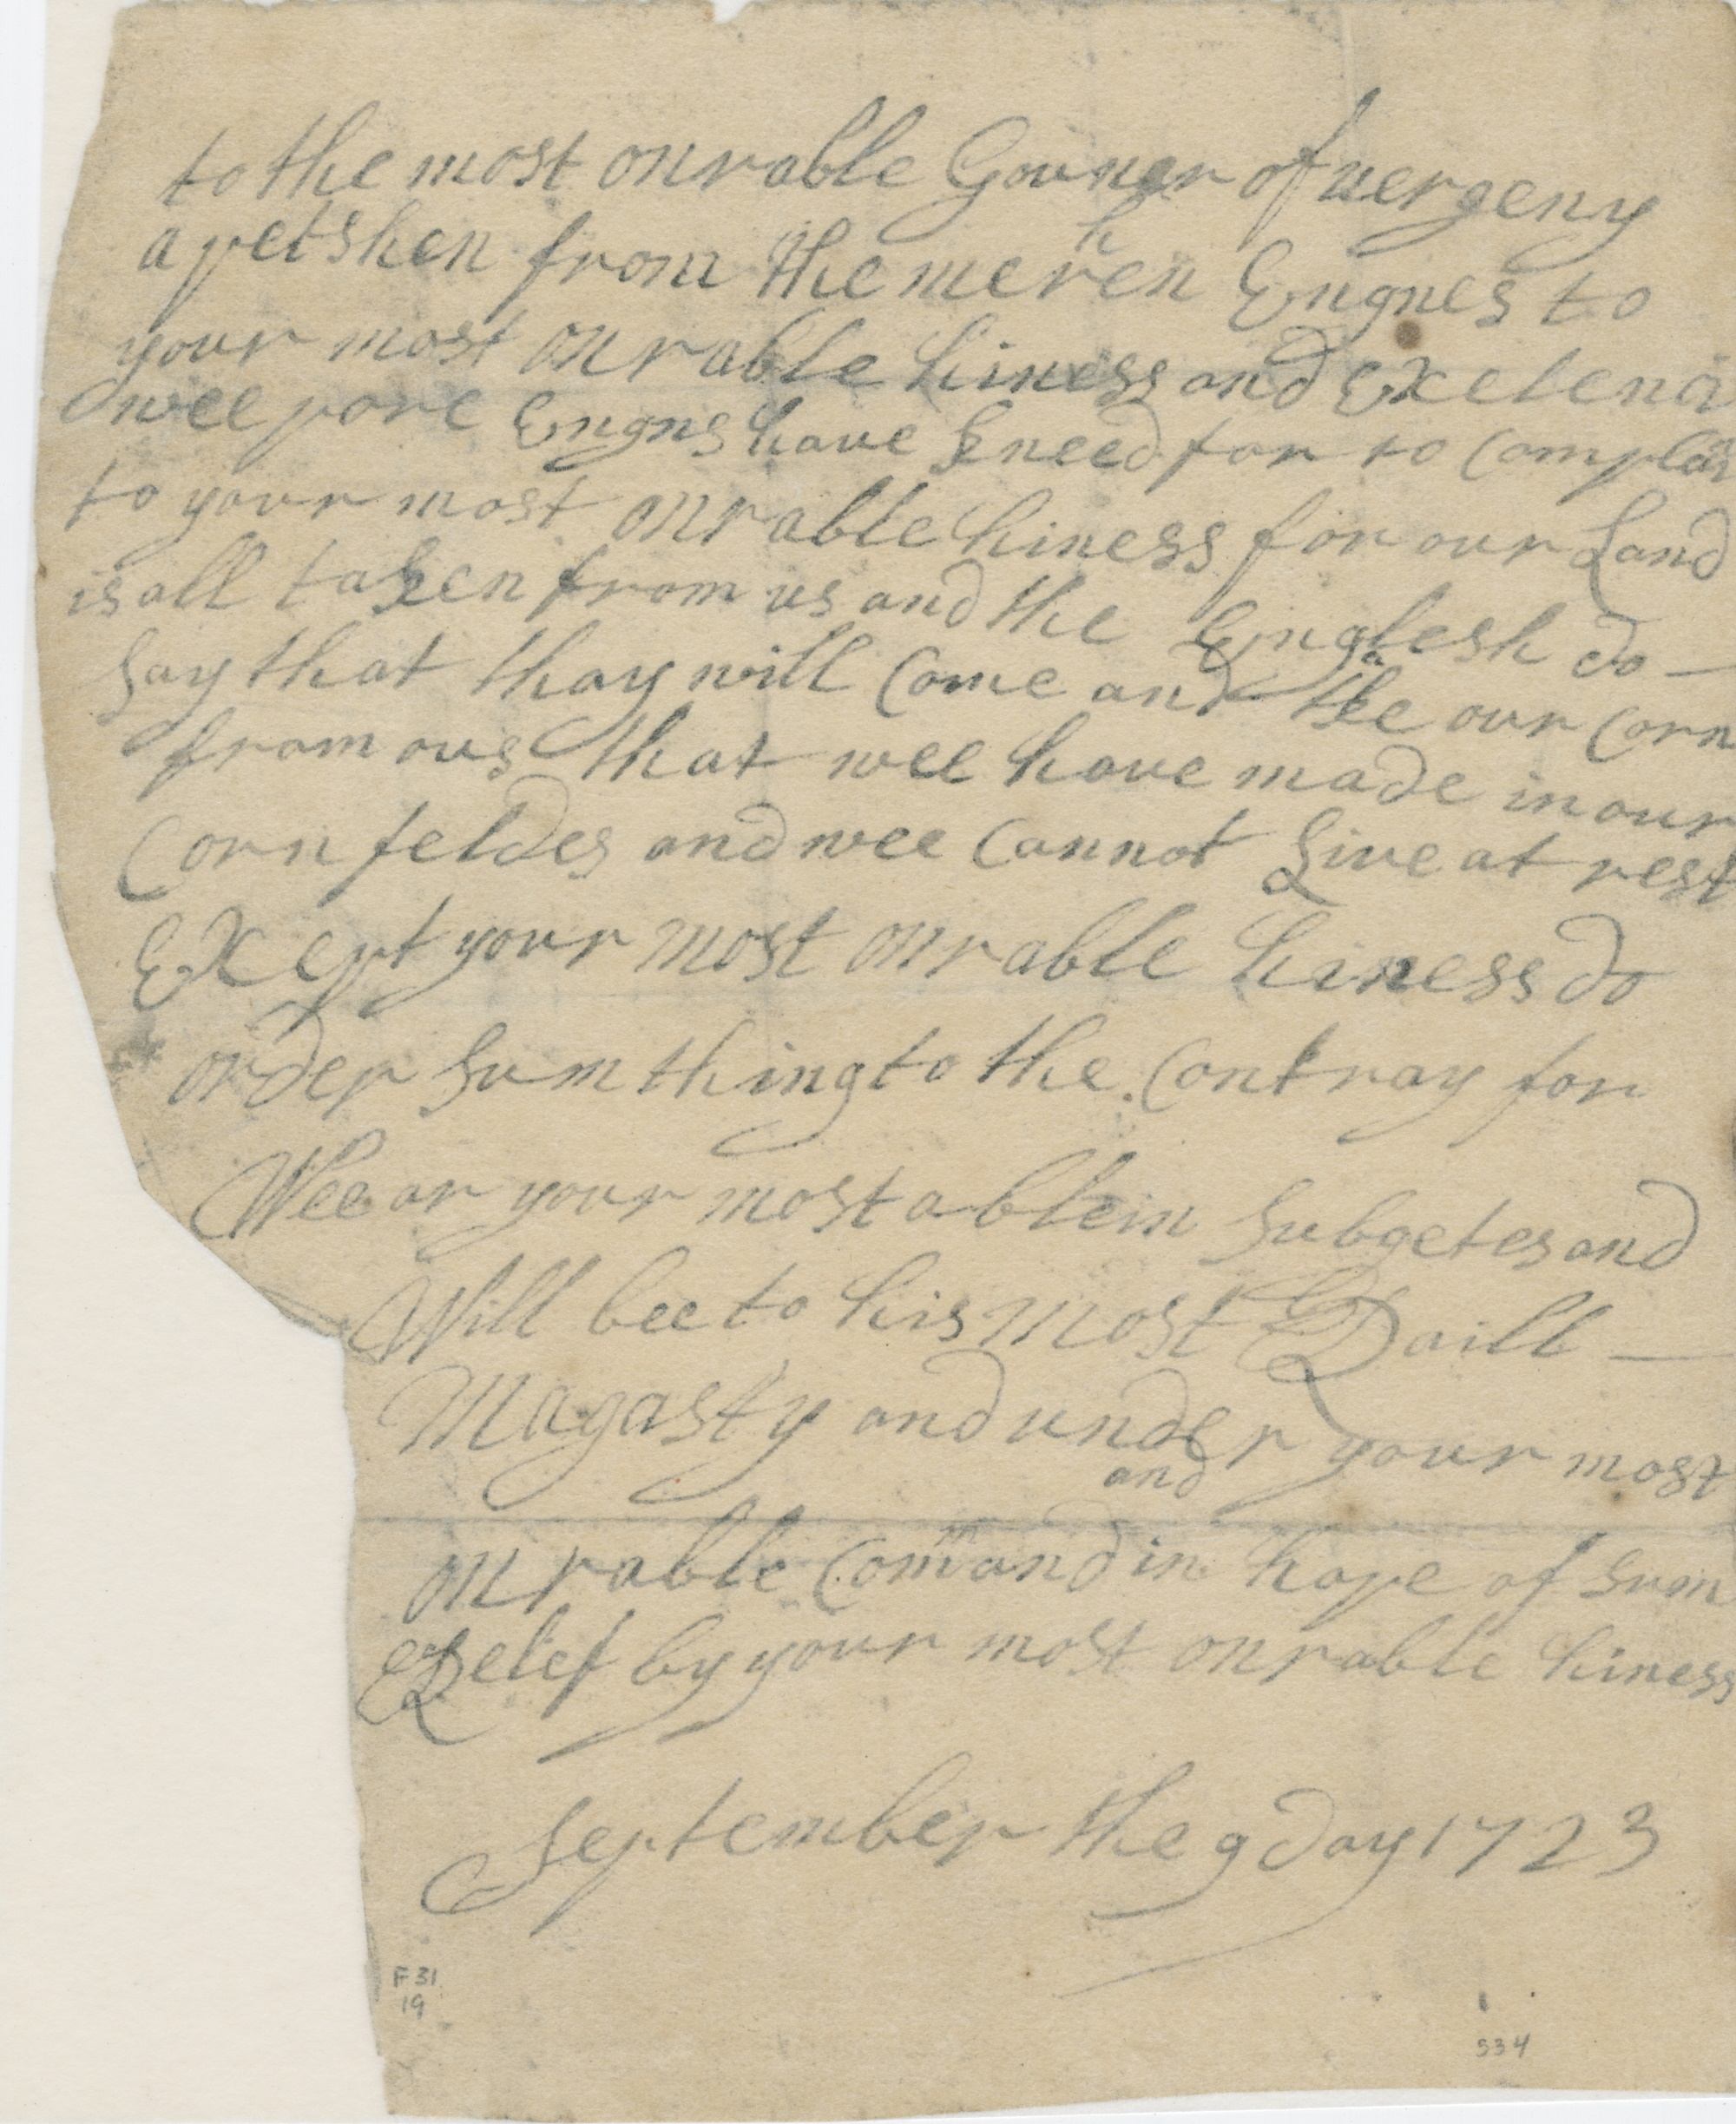 to the most onrable Govner of vergeny
a petshen from the meheren Engnes to
your most onrable hiness and Excelenci
wee pore Engns have kneed for to complain
to your most onrable hiness for our Land
is all taken from us and the Englesh do —
say that thay will come and take our corn
from ous that wee have made in our
corn feldes and wee cannot Live at rest
Except your most onrable hiness do
order sum thing to the contray for
Wee ar your most ablein subgetes and
Will bee to his most Raill —
Magasty and under your most
and
onrable command in hope of sum
Relief by your most onrable hiness
September the 9 day 1723
F 31
19
534